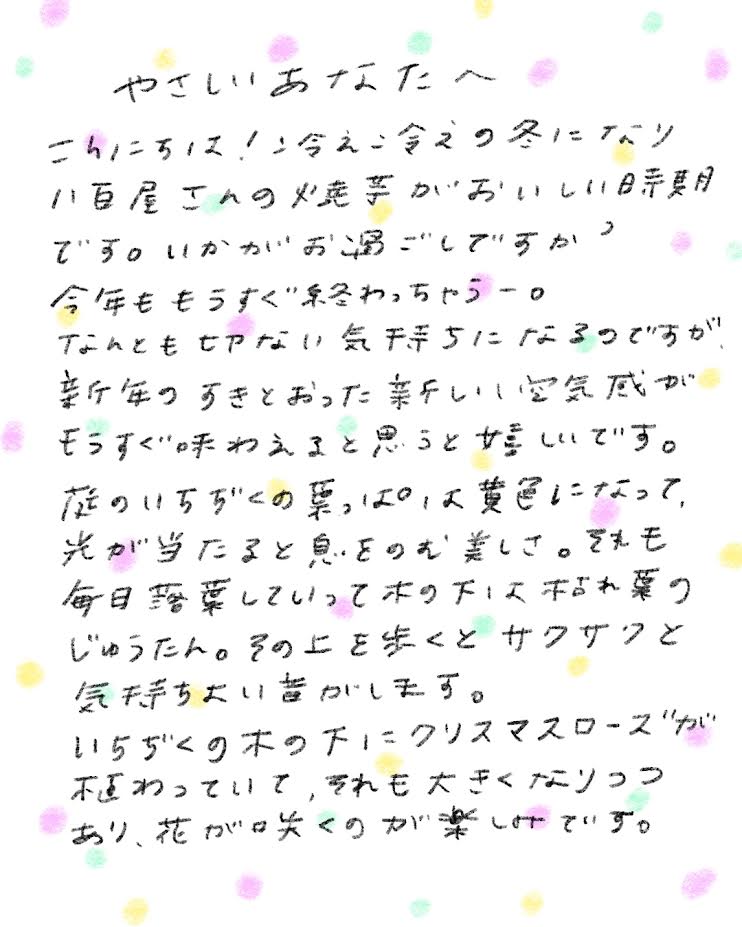 やさしいあなたへ
こんにちは！冷え冷えの冬になり
八百屋さんの焼芋がおいしい時期
です。いかがお過ごしですか？
今年ももうすぐ終わっちゃうー。
なんとも切ない気持ちになるのですが、
新年のすきとおった新しい空気感が
もうすぐ味わえると思うと嬉しいです。
庭のいちぢくの葉っぱは黄色になって、
光が当たると息をのむ美しさ。それも
毎日落葉していって木の下は枯れ葉の
じゅうたん。その上を歩くとサクサクと
気持ちよい音がします。
いちぢくの木の下にクリスマスローズが
植わっていて、それも大きくなりつつ
あり、花が咲くのが楽しみです。